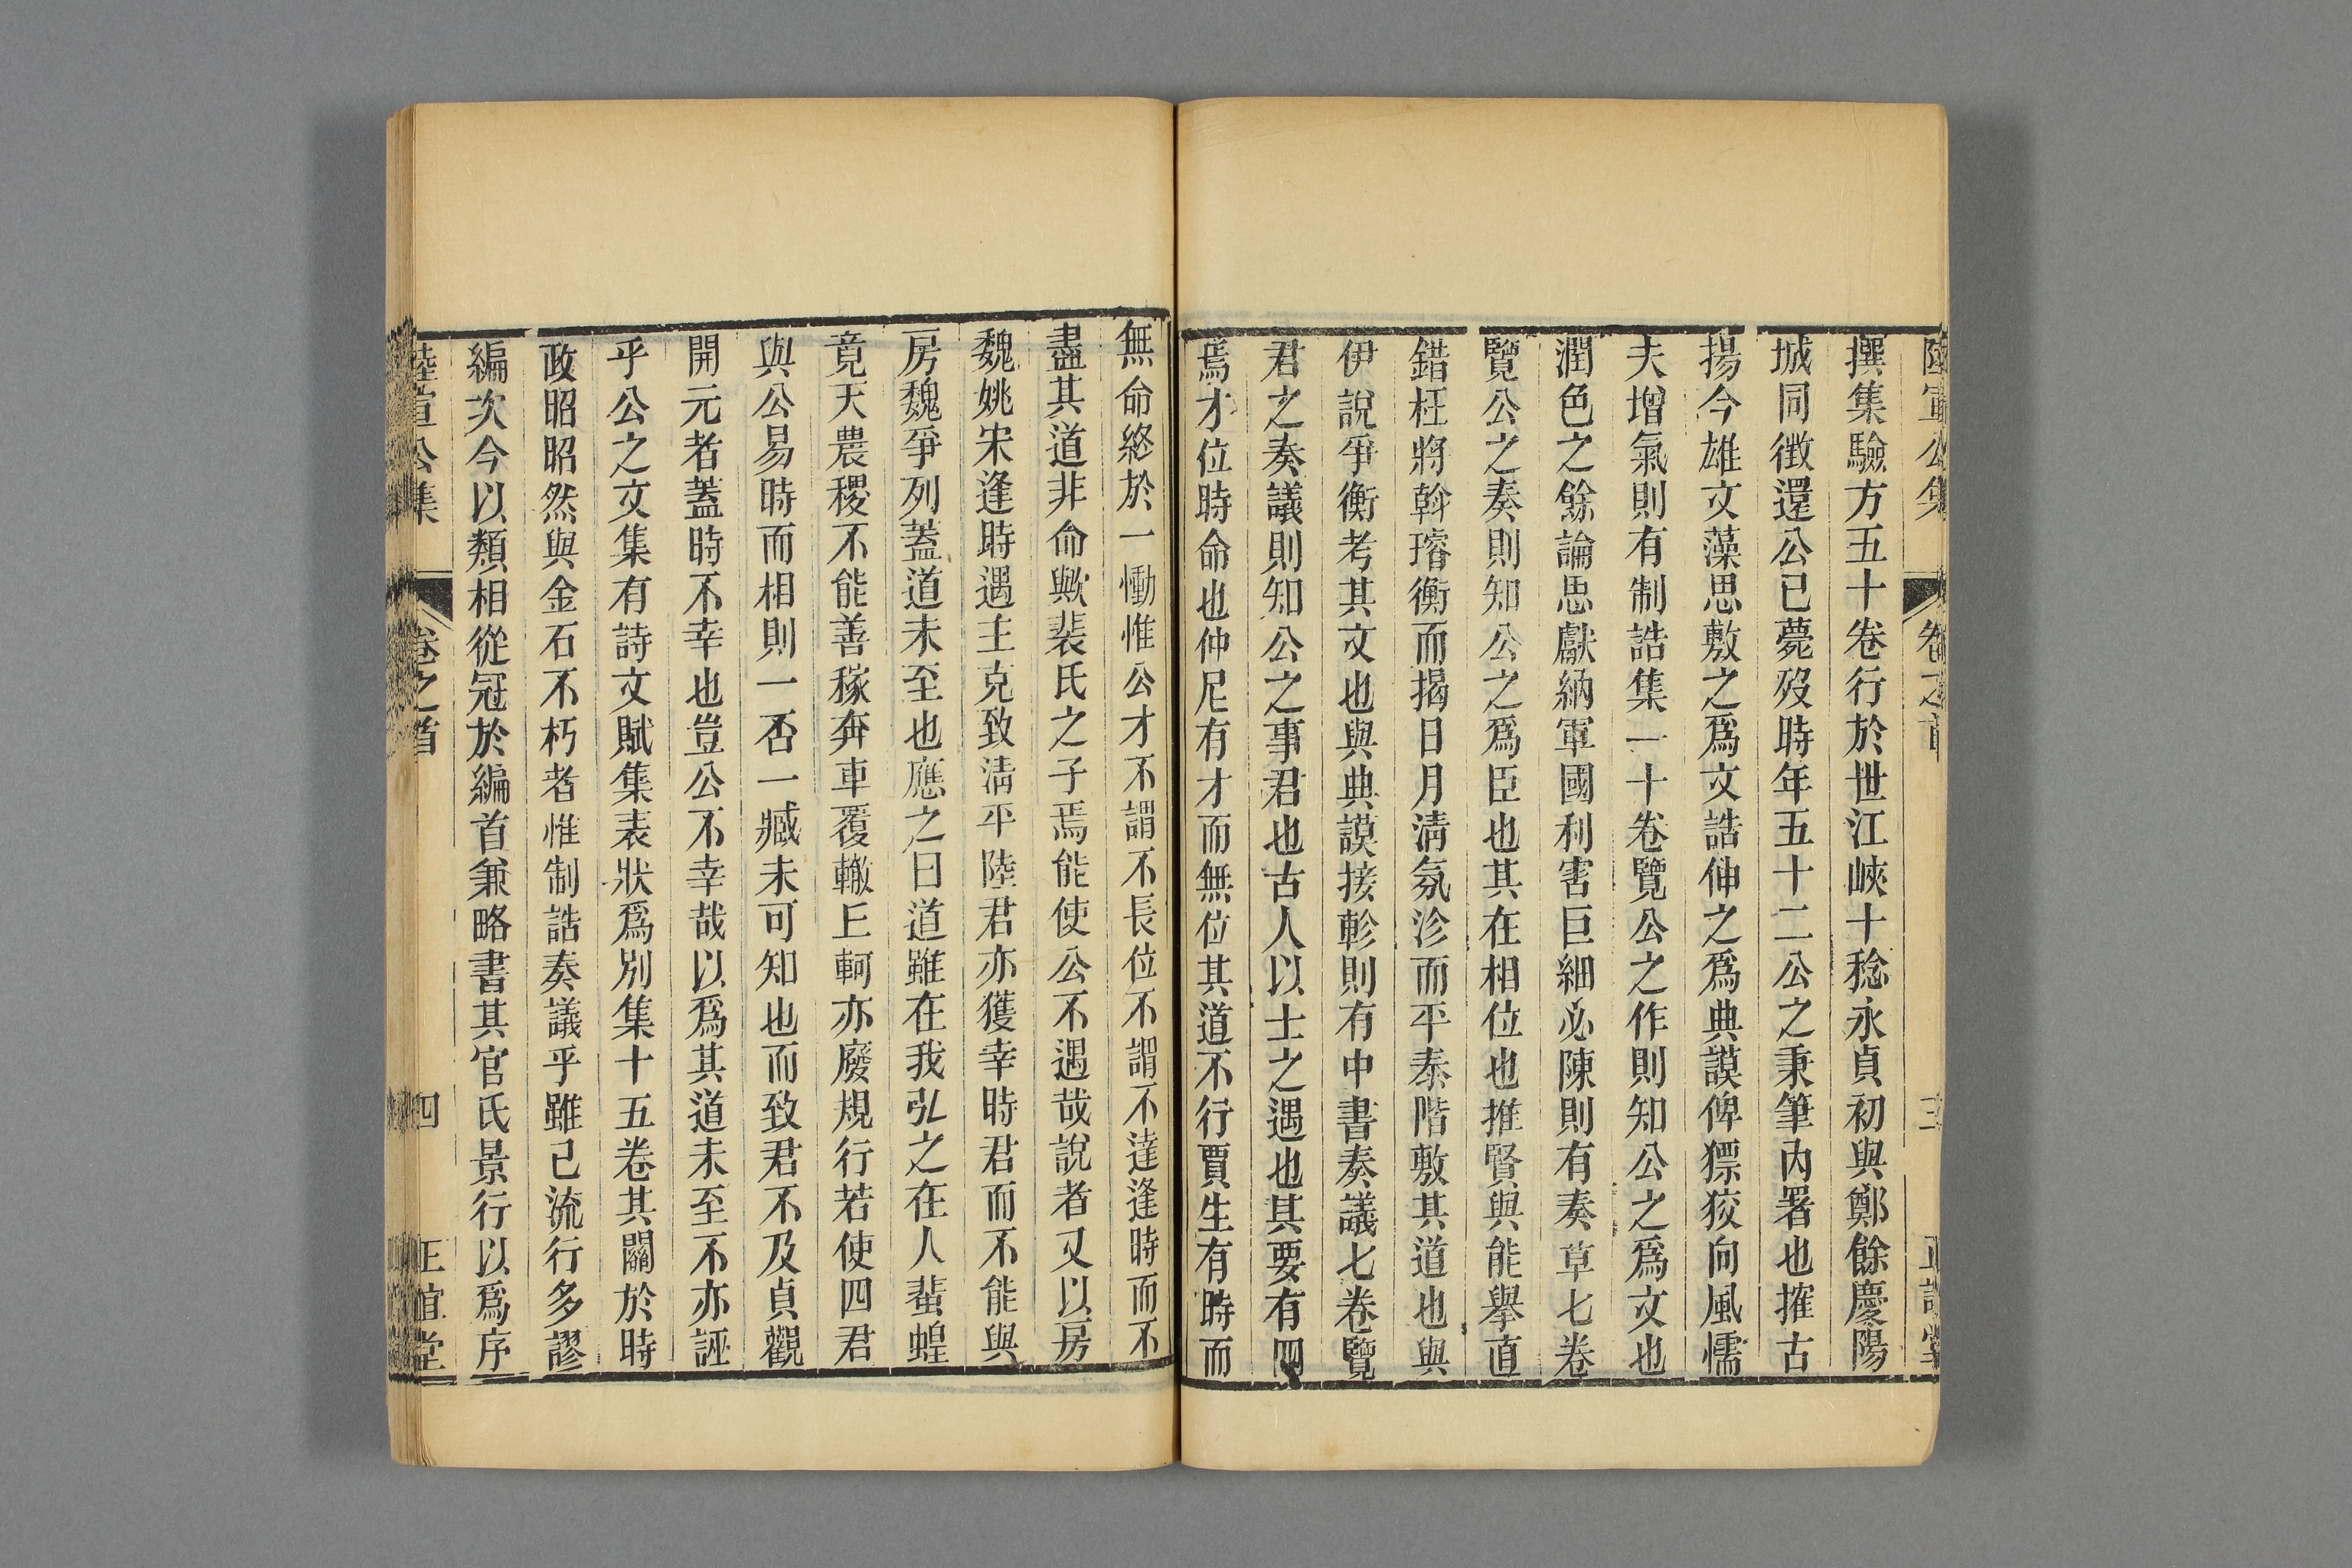 陸宣公集 卷之首 三 正誼堂
撰集驗方五十卷行於世江峽十稔永貞初與鄭餘慶陽
城同徵還公已薨歿時年五十二公之秉筆內署也摧古
揚今雄文藻思敷之爲文誥伸之爲典謨俾獷狡向風懦
夫增氣則有制誥集一十卷覽公之作則知公之爲文也
潤色之餘論思獻納軍國利害巨細必陳則有奏草七卷
覽公之奏則知公之爲臣也其在相位也推賢與能舉直
錯枉將斡璿衡而揭日月淸氛沴而平泰階敷其道也與
伊說爭衡考其文也與典謨接軫則有中書奏議七卷覽
君之奏議則知公之事君也古人以士之遇也其要有四
焉才位時命也仲尼有才而無位其道不行賈生有時而
無命終於一慟惟公才不謂不長位不謂不達逢時而不
盡其道非命歟裴氏之子焉能使公不遇哉說者又以房
魏姚宋逢時遇主克致淸平陸君亦獲幸時君而不能與
房魏爭列蓋道未至也應之曰道雖在我弘之在人蜚蝗
竟天農稷不能善稼奔車覆轍丘軻亦廢規行若使四君
與公易時而相則一否一臧未可知也而致君不及貞觀
開元者蓋時不幸也豈公不幸哉以爲其道未至不亦誣
乎公之文集有詩文賦集表狀爲別集十五卷其關於時
政昭昭然與金石不朽者惟制誥奏議乎雖已流行多謬
編次今以類相從冠於編首兼略書其官氏景行以爲序
陸宣公集 卷之首 四 正誼堂